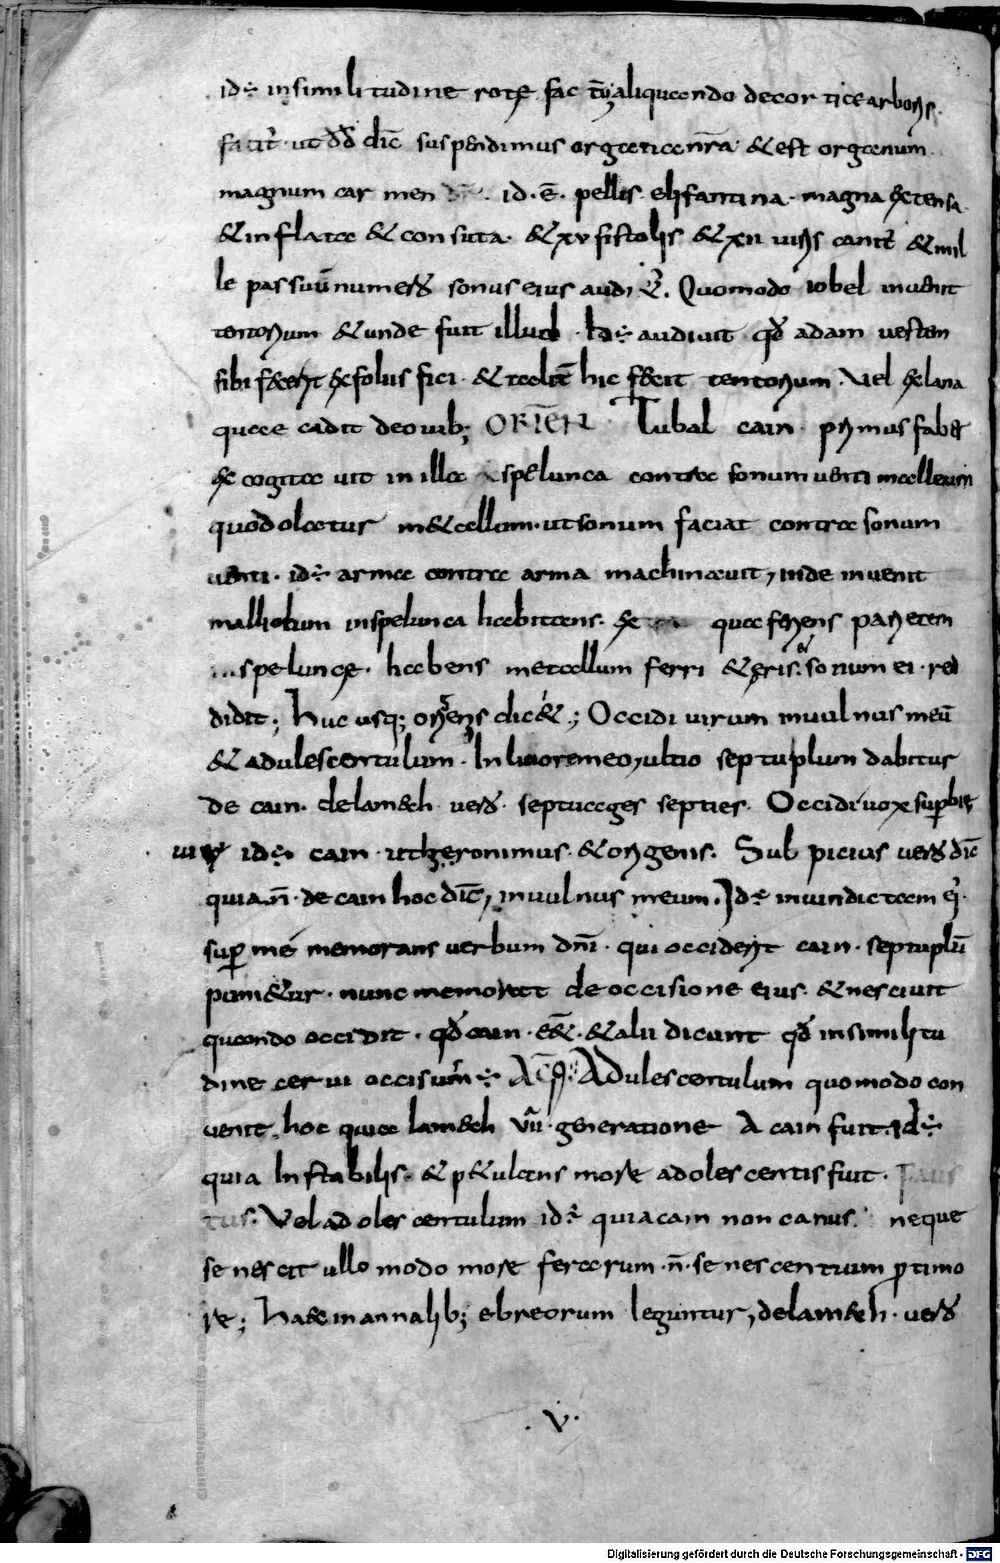 id÷ insimilitudine rotę fac aliquando decortice arboris
facit ut dd̄ dic̄ suspendimus organa nr̄a &est organum
magnum carmen id·ē· pellis elifantina· magna extensa
&inflata &consuta· &xv fistolis &xii viris &mil
le passuū numero sonus eius audi Quomodo iobel invenit
tentorium &unde fuit illud id÷ audivit qd̄ adam vestem
sibi fecerit exfoliis fici· & hic fecit tentorium· Vel exlana
quae cadit deovib; ORIEN Tubal cain· primus faber
excogitavit in illa spelunca contra sonum venti metallum
quod in&allum· utsonum faciat contra sonum
venti· id÷ arma contra arma machinavit, inde invenit
malliolum inspelunca habitans· quae feriens parietem
speluncę· habens metallum ferri &ęris· sonum ei· red
didit; Huc usq; origenis dic&.; Occidi virum invulnus meū
&adulescentulum· Inlivoremeo, ultio septuplum dabitur
de cain· delamech vero· septuages septies· Occidi vox superbię
id÷ cain· ut hyeronimus· &origenis· Sulpicius vero dic̄
quia n̄· de cain hoc dic̄, invulnus meum· Id÷ invindictam
sup̄ me memorans verbum dnī· qui occiderit cain· septuplū
puni&ur· nunc memorat de occisione eius· &nescivit
quando occidit· qd̄ cain· &alii dicunt qd̄ insimilitu
dine cervi occisum÷ Adulescentulum quomodo con
venit, hoc quia lamech vii· generatione A cain fuit· id÷
quia Instabilis· &p&ulans more adolescentis fuit·
Vel adolescentulum id÷ quia cain non canus· neque
senescit ullo modo more ferarum·n̄·senescentium p timo
re; Haec in annalib; ebreorum leguntur, delamech· vero
·V·
Digitalisierung gefördert durch die Deutsche Forschungsgemeinschaft - DFG